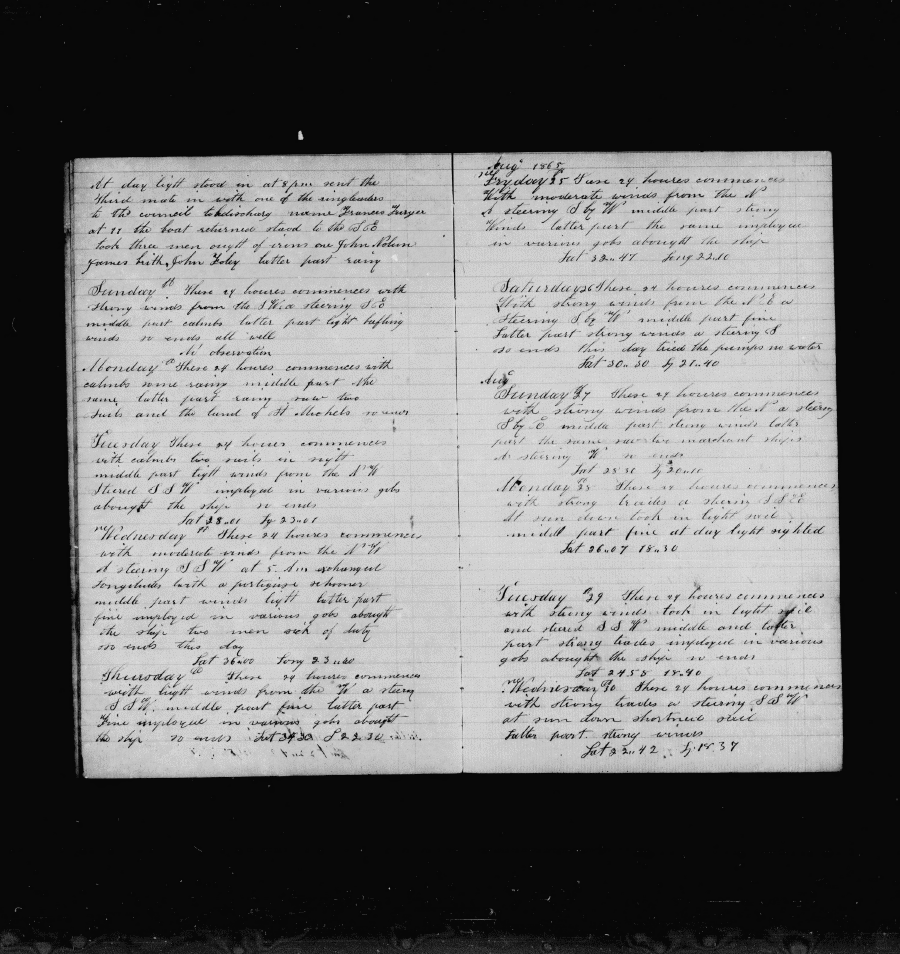 At day light stood in at 8 pm sent the
third mate in with one of the ringleaders
to the council name Frances
at 11 the boat returned stood to the S E
took three men ought of irons one John Nolan
James John Foley latter part rainy
Sunday th These 24 houres commences with
strong winds from the S W a steering S E
middle part calmbs latter part light baffling
winds so ends all well
No observation
Monday These 24 houres commences with
calmbs some rain middle part the
same latter part rainy saw two
sails and the land of St Michels so ends
Tuesday These 24 houres commences
with calmbs two sails in sight
middle part light winds from the N W
Steered S S W imployed in various gobs
abought the ship so ends
Lat 28 " 01 Lg 23 " 01
Wednesday These 24 houres commences
with moderate winds from the N W
A steering S S W at 5 Am exchanged
Longitudes with a portiguise schooner
middle part winds light latter part
fine imployed in various gobs abought
the ship two men sick of duty
so ends this day
Lat 36 " 00 Long 23 " 40
Thursday These 24 houres commences
with light winds from the W a steering
S S W middle part fine latter part
Fine imployed in various gobs abought
the ship so ends Lat 22 " 30
Aug 1865
Fryday 25 These 24 houres commences
With moderate winds from the N
A steering S by W middle part strong
Winds latter part the same imployed
in various gobs abought the ship
Lat 32 " 47 Long 22 " 10
Saturday 26 These 24 houres commences
With strong winds from the N E a
Steering S by W middle part fine
Latter part strong winds a steering S
so ends this day tried the pumps no water
Lat 30 " 30 Lg 21 " 40
Aug
Sunday 27 These 24 houres commences
with strong winds from the N a steering
S by E middle part strong winds latter
part the same saw two marchant ships
A steering W so ends
Lat 28 30 Lg 20 " 10
Monday 28 These 24 houres commences
with strong trades a steering S S E
At sun down took in light sail
middle part fine at day light sighted
Lat 26 " 07 18 " 30
Tuesday 29 These 24 houres commences
with strong winds took in light sail
and steered S S W middle and latter
part strong trades imployed in various
gobs abought the ship so ends
Lat 24 58 18 " 40
Wednesday 30 These 24 houres commences
with strong trades a steering S S W
at sun down shortned sail
Latter part strong winds
Lat 22 " 42 Lg 18 37